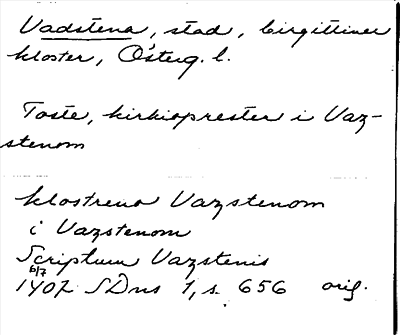 Vadstena, stad, birgittiner
kloster, Österg. l.
Toste, kirkioprester i Vaz-
stenom
klostreno Vazstenom
i Vazstenom
Scriptum Vazstenis
6/7
1407 SDns 1, s. 656 orig.